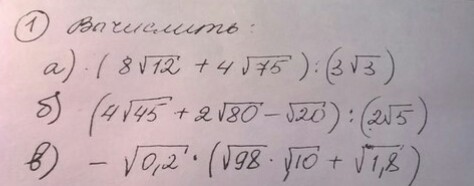 ① Вычислить:
а) · (8√12 + 4√75) : (3√3)
б) (4√45 + 2√80 − √20) : (2√5)
в) − √0,2 · (√98 · √10 + √1,8)